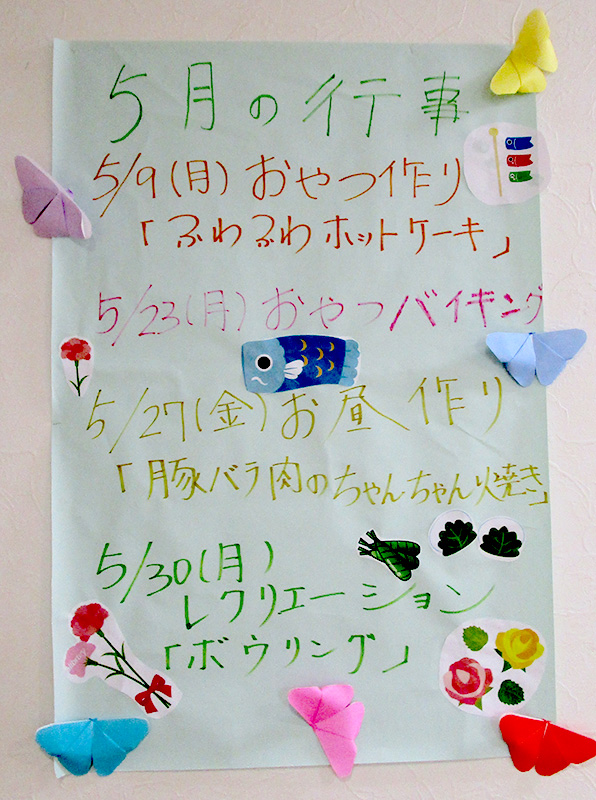 5月の行事
5/9(月)おやつ作り
「ふわふわホットケーキ」
5/23(月)おやつバイキング
5/27(金)お昼作り
「豚バラ肉のちゃんちゃん焼き」
5/30(月)
レクリエーション
「ボウリング」